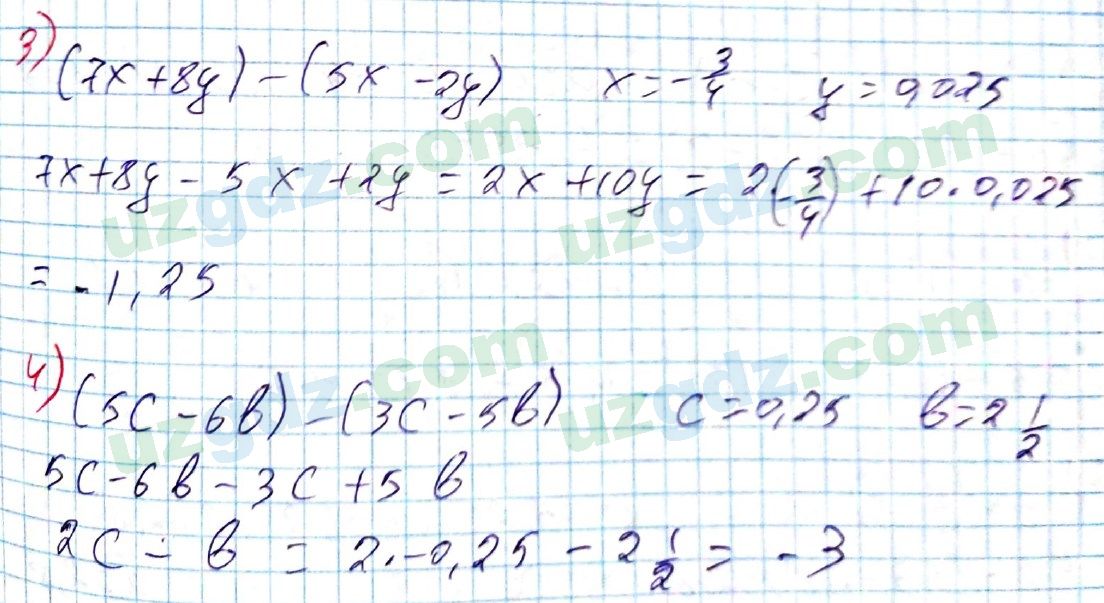 3) (7x+8y)-(5x-2y)   x=-3/4   y=0,025
7x+8y-5x+2y=2x+10y=2(-3/4)+10·0,025
=-1,25
4) (5c-6b)-(3c-5b)   c=0,25   b=2 1/2
5c-6b-3c+5b
2c-b=2·-0,25-2 1/2=-3
uzgdz.com
uzgdz.com
uzgdz.com
uzgdz.com